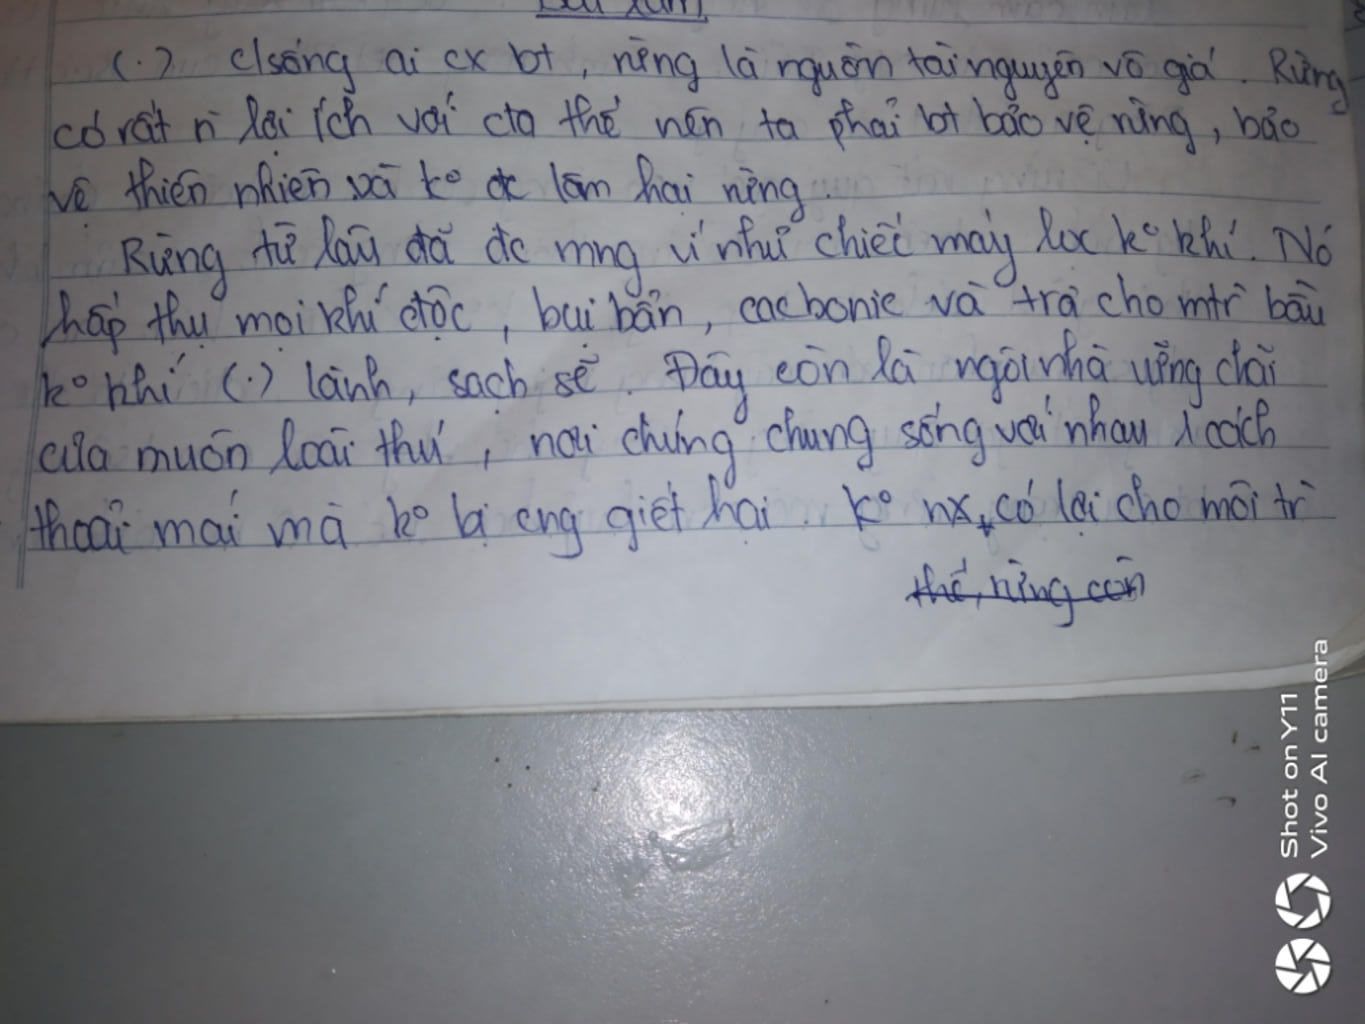 Bài Làm
(.) c/sống ai cx bt, rừng là nguồn tài nguyên vô giá. Rừng
có rất n` lợi ích với cta thế nên ta phải bt bảo vệ rừng, bảo
vệ thiên nhiên và k° đc làm hại rừng.
Rừng từ lâu đã đc mng ví như chiếc máy lọc k° khí. Nó
hấp thụ mọi khí độc, bụi bẩn, cacbonic và trả cho mtr` bầu
k° khí (.) lành, sạch sẽ. Đây còn là ngôi nhà
của muôn loài thú, nơi chúng chung sống với nhau 1 cách
thoải mái mà k° bị cng giết hại. K° nx, có lợi cho môi tr`
thế, rừng còn
Shot on Y11
Vivo AI camera